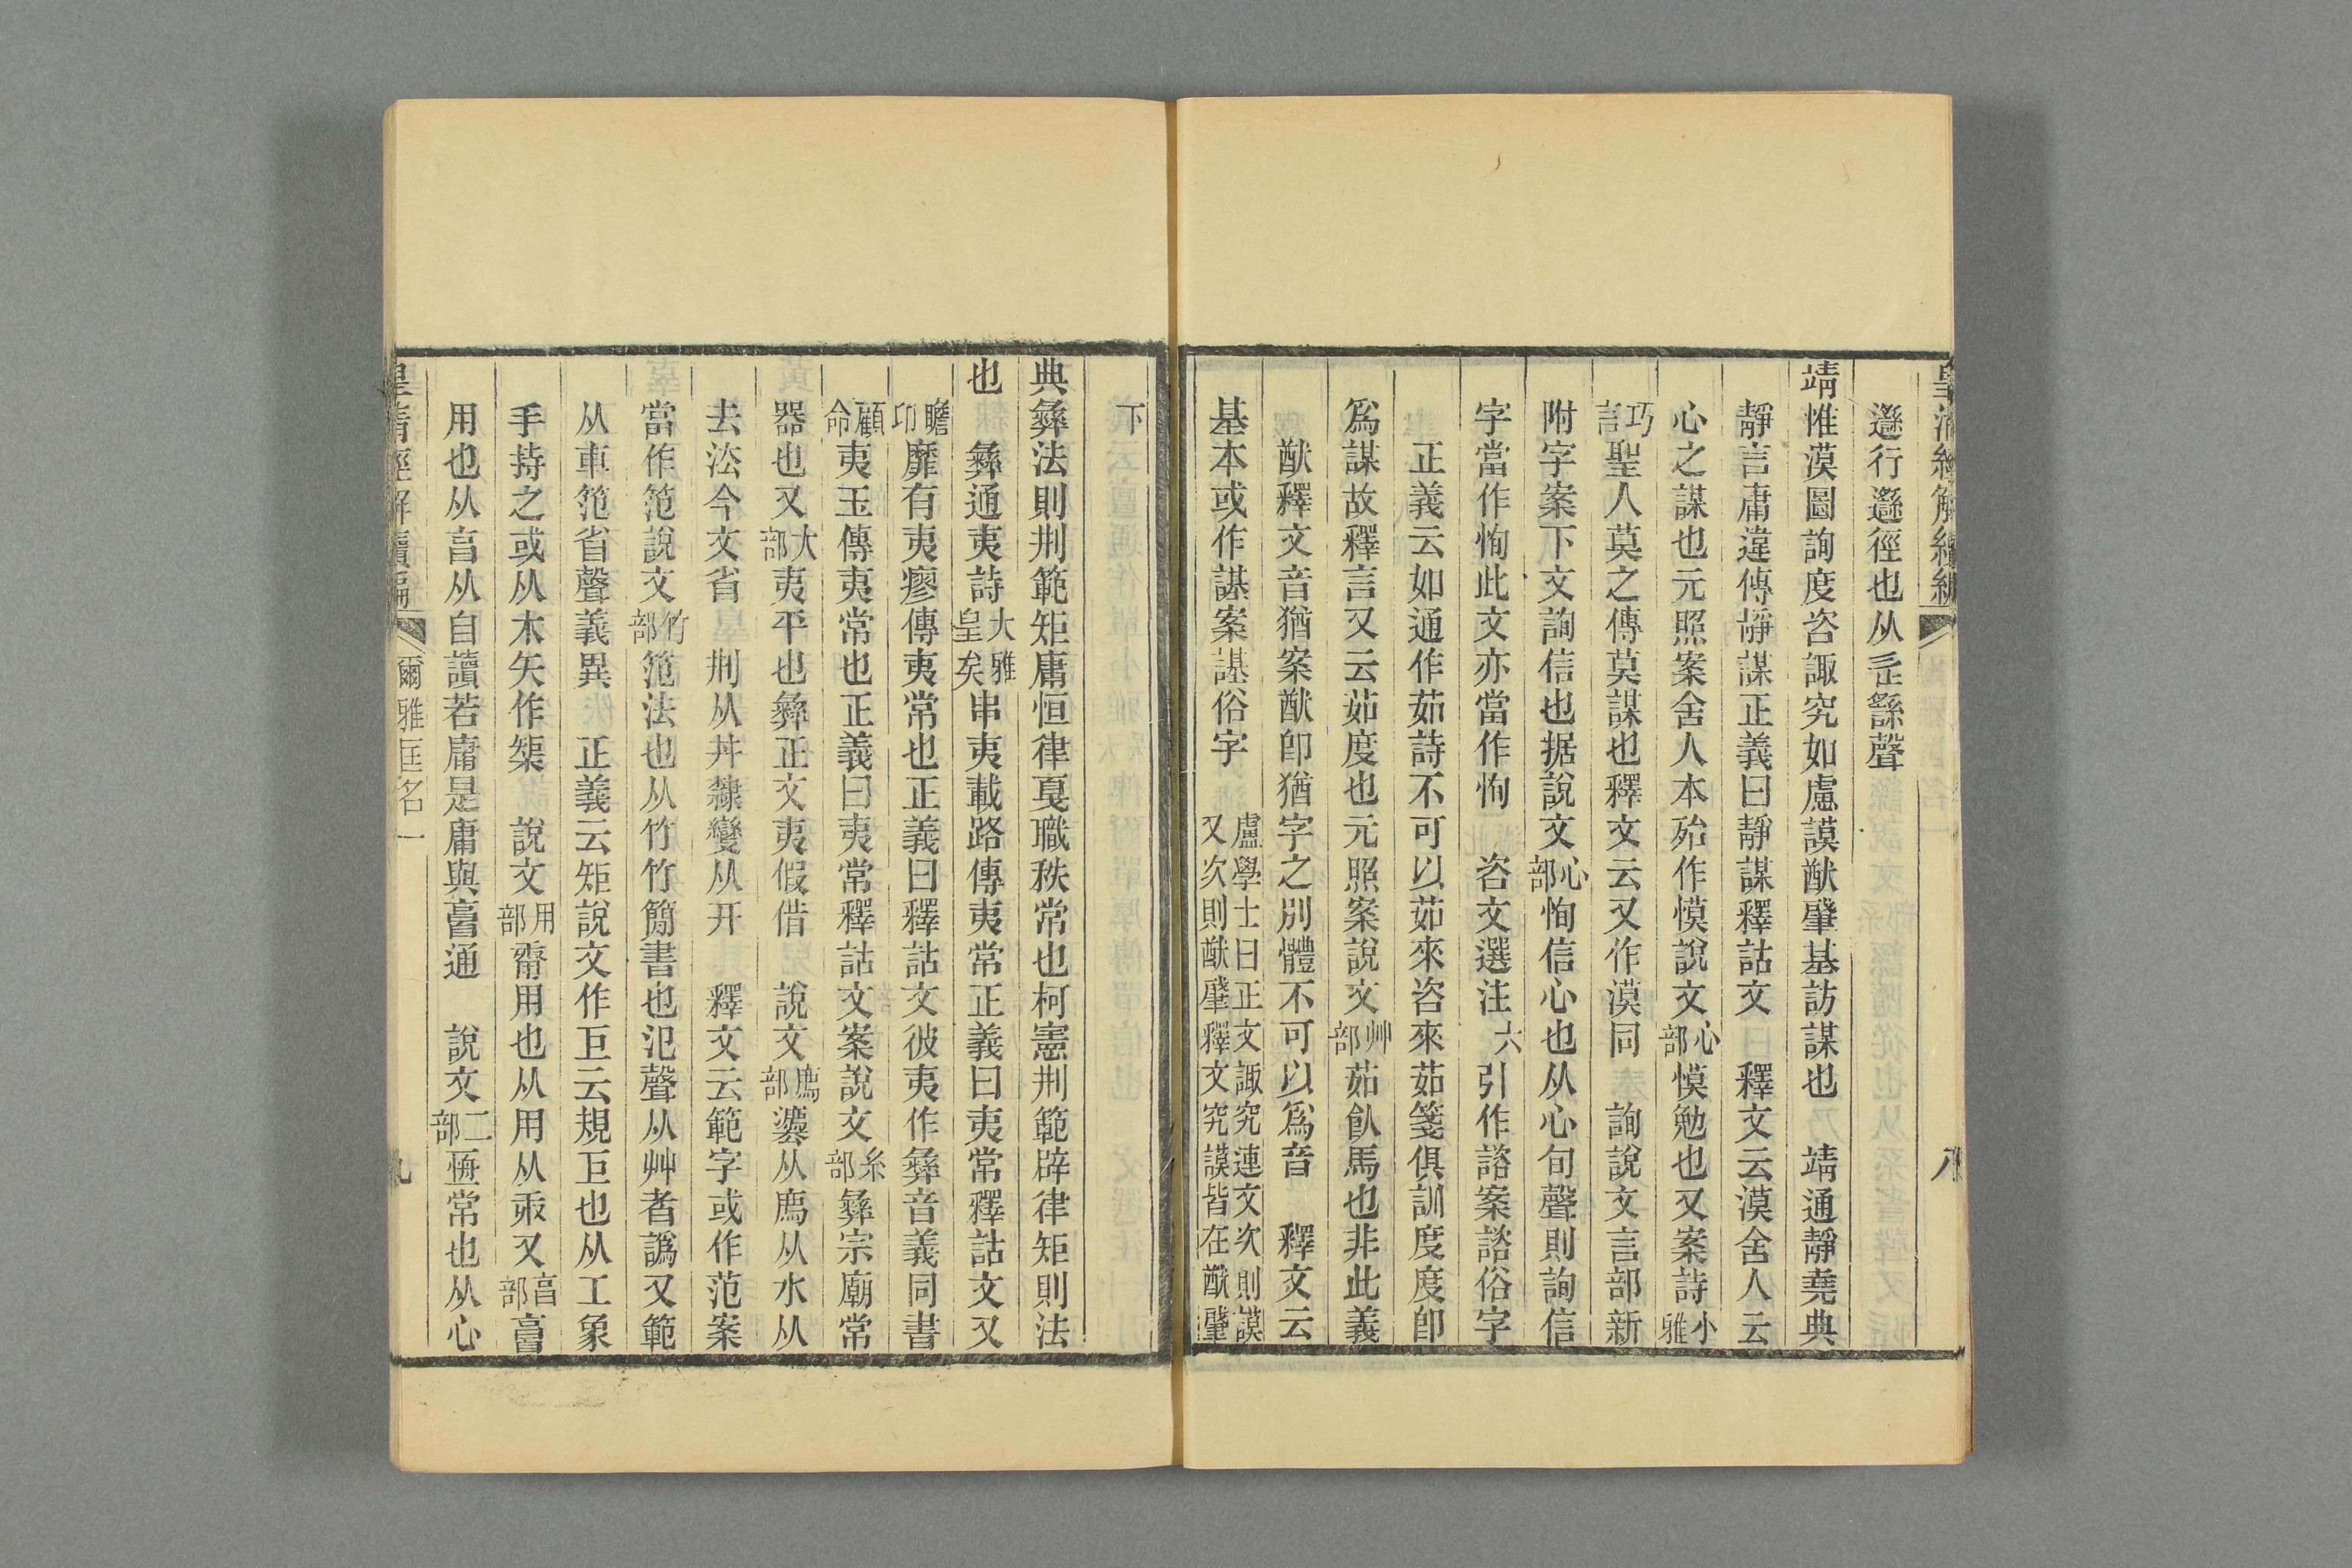 皇清經解續編
八
邎行邎徑也从辵䌛聲
靖惟漠圖詢度咨諏究如慮謨猷肇基訪謀也　靖通靜堯典
靜言庸違傳靜謀正義曰靜謀釋詁文　釋文云漠舍人云
心之謀也元照案舍人本殆作慔說文心部慔勉也又案詩小雅
巧言聖人莫之傳莫謀也釋文云又作漠同　詢說文言部新
附字案下文詢信也据說文心部恂信心也从心旬聲則詢信
字當作恂此文亦當作恂　咨文選注六引作諮案諮俗字
正義云如通作茹詩不可以茹來咨來茹箋俱訓度度卽
爲謀故釋言又云茹度也元照案說文艸部茹飤馬也非此義
猷釋文音猶案猷卽猶字之別體不可以爲音　釋文云
基本或作諆案諆俗字　盧學士曰正文諏究連文次則謨
又次則猷肇釋文究謨皆在猷肇
下
典彝法則刑範矩庸恒律戛職秩常也柯憲刑範辟律矩則法
也　彝通夷詩大雅皇矣串夷載路傳夷常正義曰夷常釋詁文又
瞻卬靡有夷瘳傳夷常也正義曰釋詁文彼夷作彝音義同書
顧命夷玉傳夷常也正義曰夷常釋詁文案說文糸部彝宗廟常
器也又大部夷平也彝正文夷假借　說文廌部灋从廌从水从
去法今文省　刑从丼隸變从幵　釋文云範字或作范案
當作笵說文竹部笵法也从竹竹簡書也氾聲从艸者譌又範
从車笵省聲義異　正義云矩說文作巨云規巨也从工象
手持之或从木矢作榘　說文用部庸用也从用从庚又㐭部𠅩
用也从㐭从自讀若庸是庸與𠅩通　說文二部恆常也从心
皇清經解續編
爾雅匡名一
九